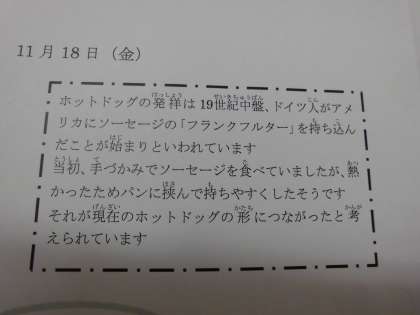 11月18日（金）
ホットドッグの発祥は19世紀中盤、ドイツ人がアメ
リカにソーセージの「フランクフルター」を持ち込ん
だことが始まりといわれています
当初、手づかみでソーセージを食べていましたが、熱
かったためパンに挟んで持ちやすくしたそうです
それが現在のホットドッグの形につながったと考
えられています